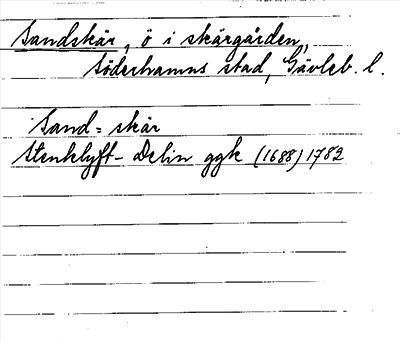 Sandskär, ö i skärgården,
Söderhamns stad, Gävleb. l.
Sand=skär
Stenklyft-Delin ggk (1688) 1782